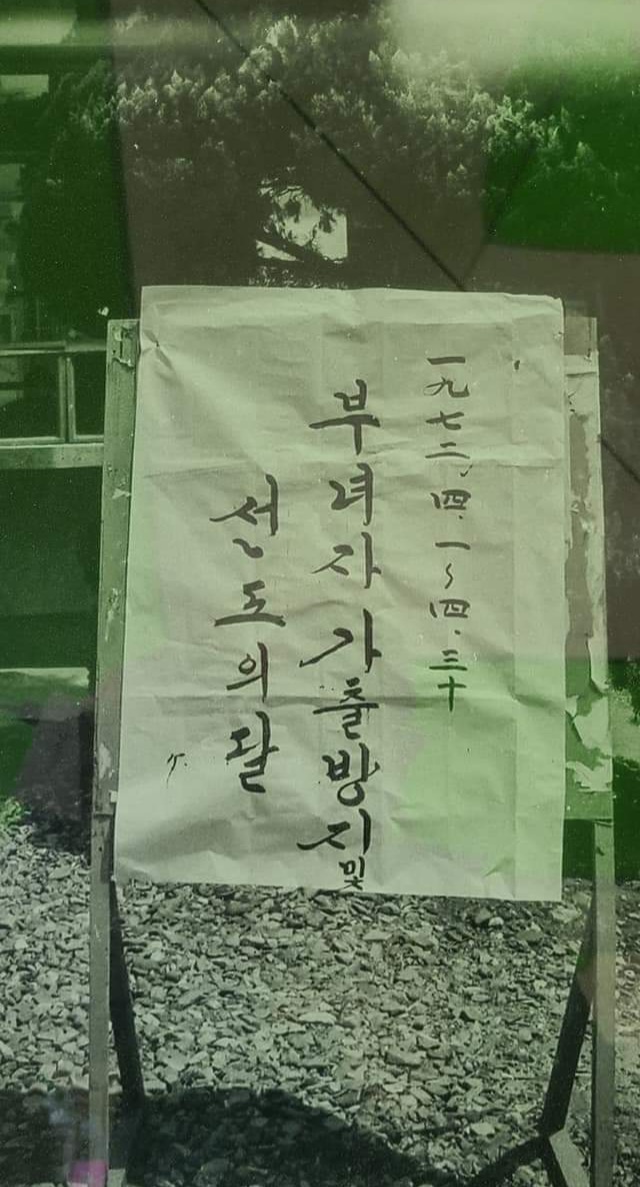 一九七二, 四. 一~四. 三十
부녀자 가출방지 및
선도의 달